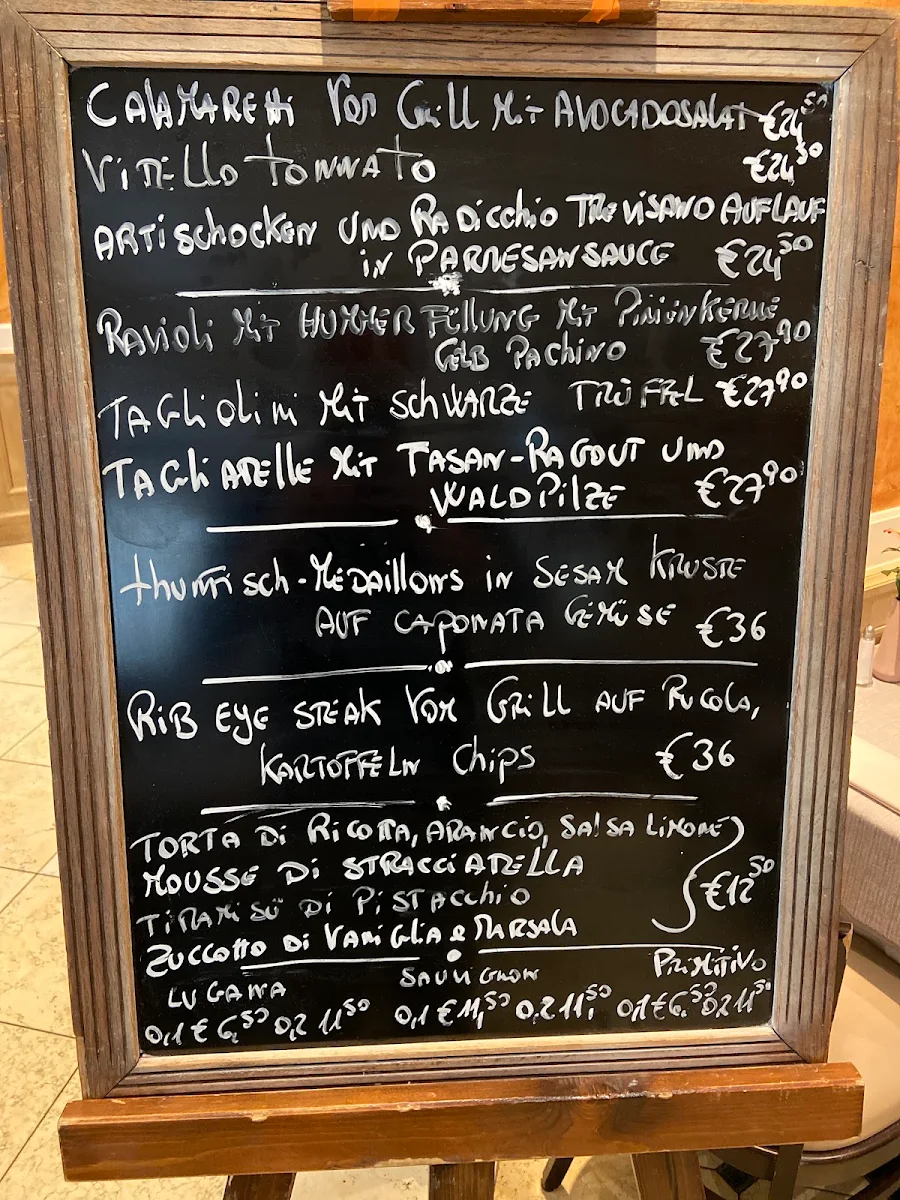 CALAMARETTI VOM GRILL MIT AVOCADOSALAT €24,50
VITELLO TONNATO €24,50
ARTISCHOCKEN UND RADICCHIO TREVISANO AUFLAUF
IN PARMESANSAUCE €24,50
RAVIOLI MIT HUMMER FÜLLUNG MIT PINIENKERNE
GELB PACHINO €27,90
TAGLIOLINI MIT SCHWARZE TRÜFFEL €27,90
TAGLIATELLE MIT FASAN-RAGOUT UND
WALDPILZE €27,90
THUNFISCH-MEDAILLONS IN SESAM KRUSTE
AUF CAPONATA GEMÜSE €36
RIB EYE STEAK VOM GRILL AUF RUCOLA,
KARTOFFELN CHIPS €36
TORTA DI RICOTTA, ARANCIO, SALSA LIMONE
MOUSSE DI STRACCIATELLA
€12,50
TIRAMISÙ DI PISTACCHIO
ZUCCOTTO DI VANIGLIA e MARSALA
LUGANA SAUVIGNON PRIMITIVO
0,1 € 6,50 0,2 11,50 0,1 € 11,50 0,2 11,50 0,1 € 6,50 0,2 11,50